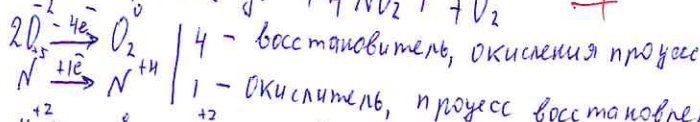 4NO₂↑ + O₂
2O⁻² -4ē→ O₂⁰ | 4 - восстановитель, окисления процесс
N⁺⁵ +1ē→ N⁺⁴ | 1 - окислитель, процесс восстановле
+2 +2